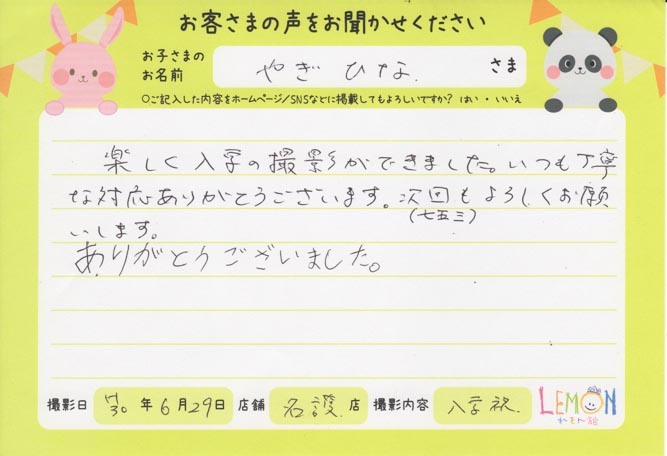 お客さまの声をお聞かせください
お子さまの
お名前
やぎ ひな
さま
○ご記入した内容をホームページ/SNSなどに掲載してもよろしいですか? はい・いいえ
楽しく入学の撮影ができました。いつも丁寧
な対応ありがとうございます。次回もよろしくお願
(七五三)
いします。
ありがとうございました。
撮影日 H30 年 6 月 29 日 店舗 名護 店 撮影内容 入学祝
LEMON
れもん館